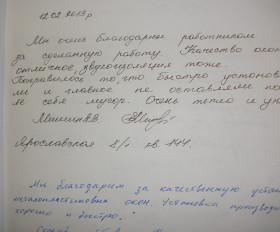 12.02.2013г
Мы очень благодарны работникам
за сделанную работу. Качество окон
отличное, звукоизоляция тоже.
Понравилось то что быстро установи
ли и главное не оставляли по
ле себя мусор. Очень тепло и ую
Ярославская 8/1 кв. 144.
Мы благодарим за качественную уста
металлопластиковых окон. Установка производ
хорошо и быстро."